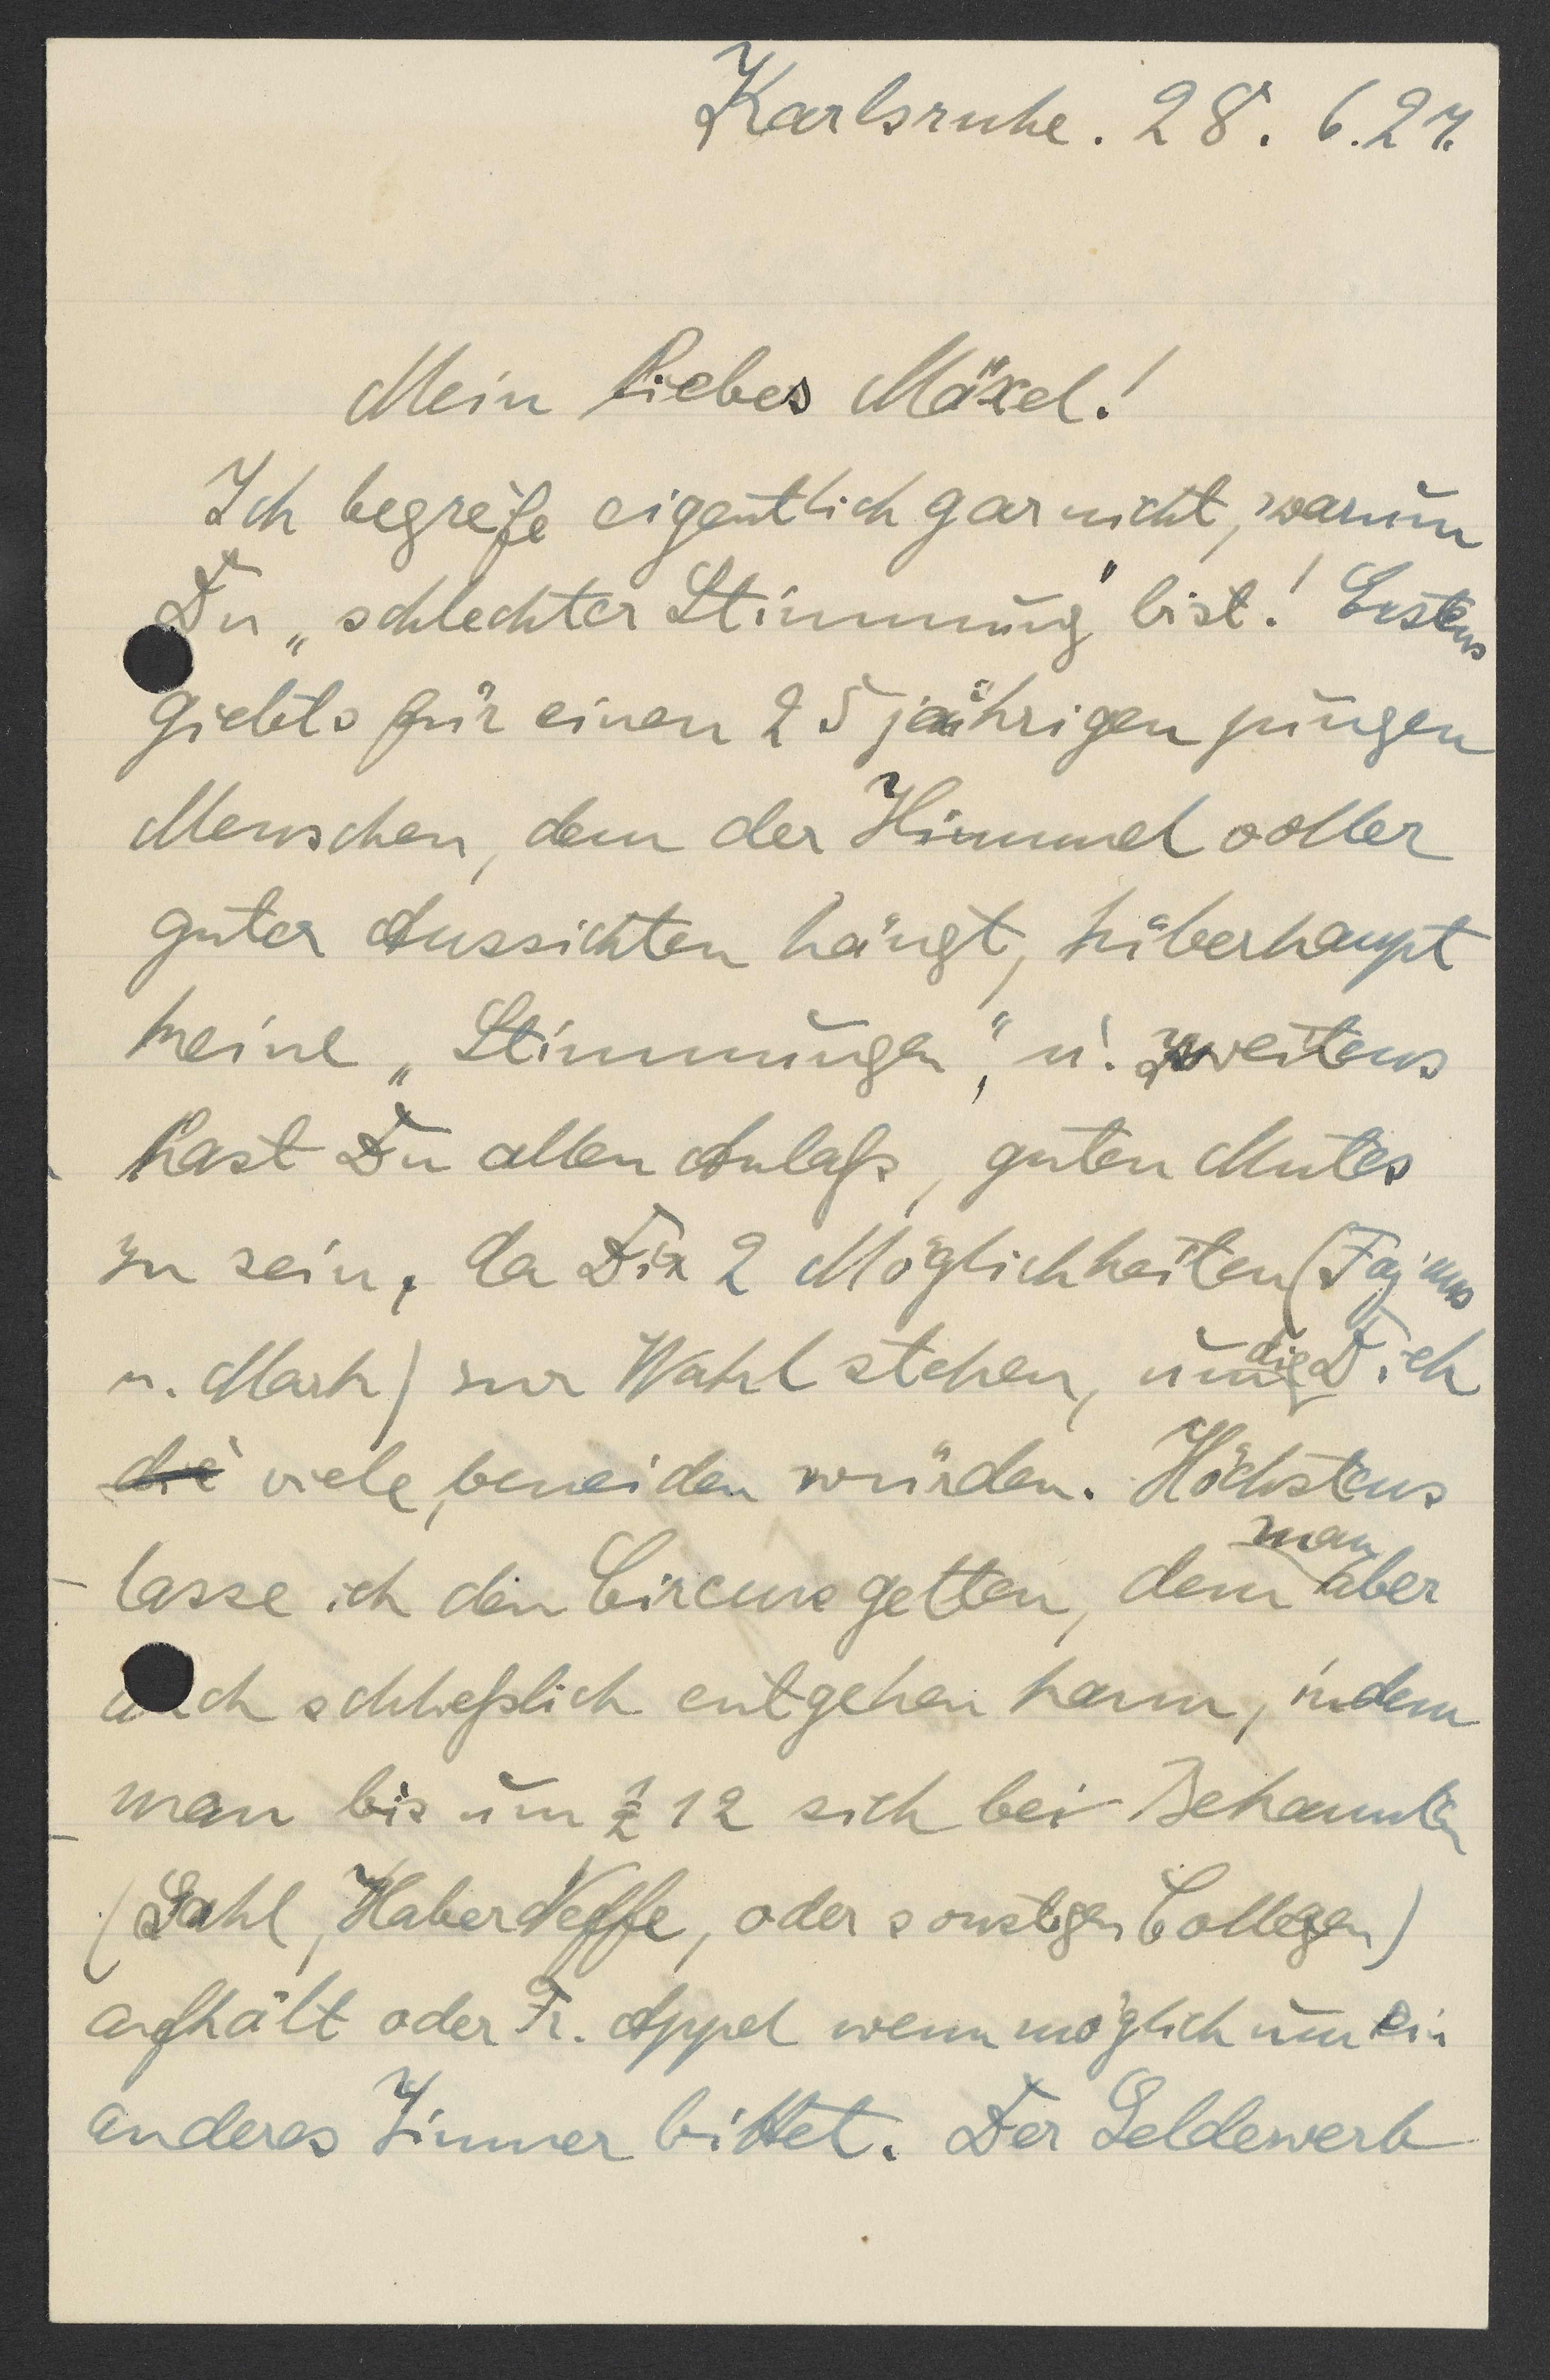 Karlsruhe. 28. 6. 27.
Mein liebes Mäxel!
Ich begreife eigentlich gar nicht, warum
Du „schlechter Stimmung" bist! Erstens
giebts für einen 25 jährigen jungen
Menschen, dem der Himmel voller
guter Aussichten hängt, überhaupt
keine „Stimmungen", u. zweitens
hast Du allen Anlaß, guten Mutes
zu sein, da Dir 2 Möglichkeiten (Fajans
u. Mark) zur Wahl stehen, um die Dich
die viele beneiden würden. Höchstens
lasse ich den Circus gelten, dem man aber
auch schließlich entgehen kann, indem
man bis um ½ 12 sich bei Bekannten
(Dahl, Haber Neffe, oder sonstigen Collegen)
aufhält oder Fr. Appel wenn möglich um ein
anderes Zimmer bittet. Der Gelderwerb